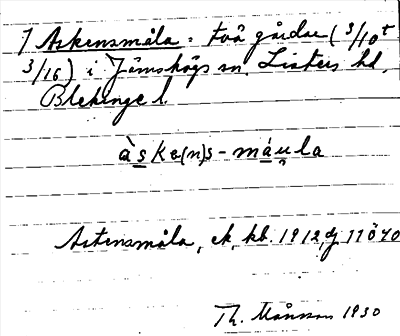 7 Askensmåla. två gårdar (3/10 t
3/16) i Jämshögs sn, Listers hd,
Blekinge l.
àske(n)s-máu̯la
Askensmåla, ek. kb. 1912
Th. Månsson 1930